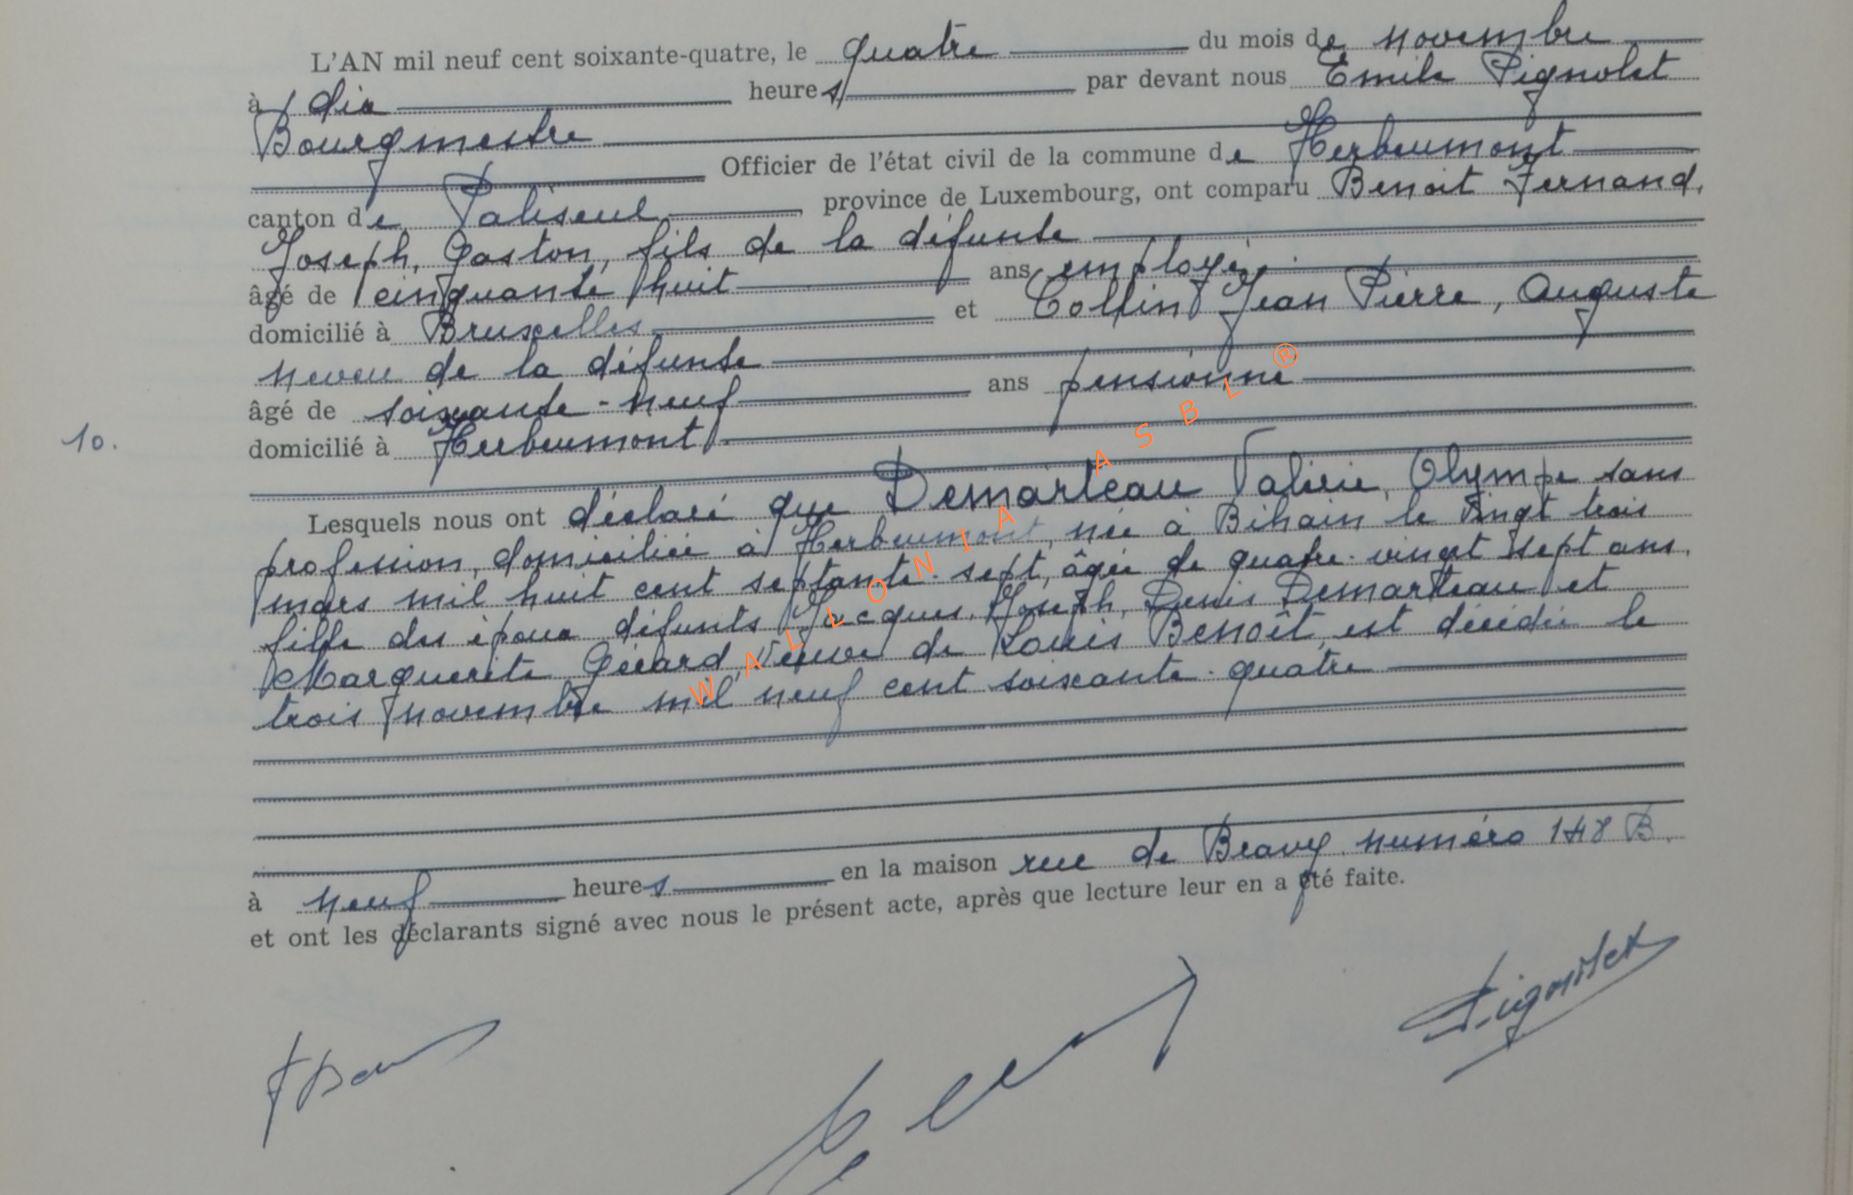 L'AN mil neuf cent soixante-quatre, le quatre du mois de novembre
à dix heures par devant nous Emile Pignolet
Bourgmestre
Officier de l'état civil de la commune de Herbeumont
canton de Paliseul province de Luxembourg, ont comparu Benoit Fernand,
Joseph, Gaston, fils de la défunte
âgé de cinquante huit ans employé
domicilié à Bruxelles et Collin Jean Pierre, Auguste
neveu de la défunte
âgé de soixante-neuf ans pensionné
10. domicilié à Herbeumont
Lesquels nous ont déclaré que Demarteau Valérie, Olympe sans
profession, domiciliée à Herbeumont, née à Bihain le vingt trois
mars mil huit cent septante-sept, âgée de quatre-vingt sept ans,
fille des époux défunts Jacques, Joseph, Denis Demarteau et
Marguerite Gérard, veuve de Louis Benoît, est décédée le
trois novembre mil neuf cent soixante-quatre
à neuf heures en la maison rue de Bravy numéro 148 B.
et ont les déclarants signé avec nous le présent acte, après que lecture leur en a été faite.
Pignolet
WALLONIA ASBL ®